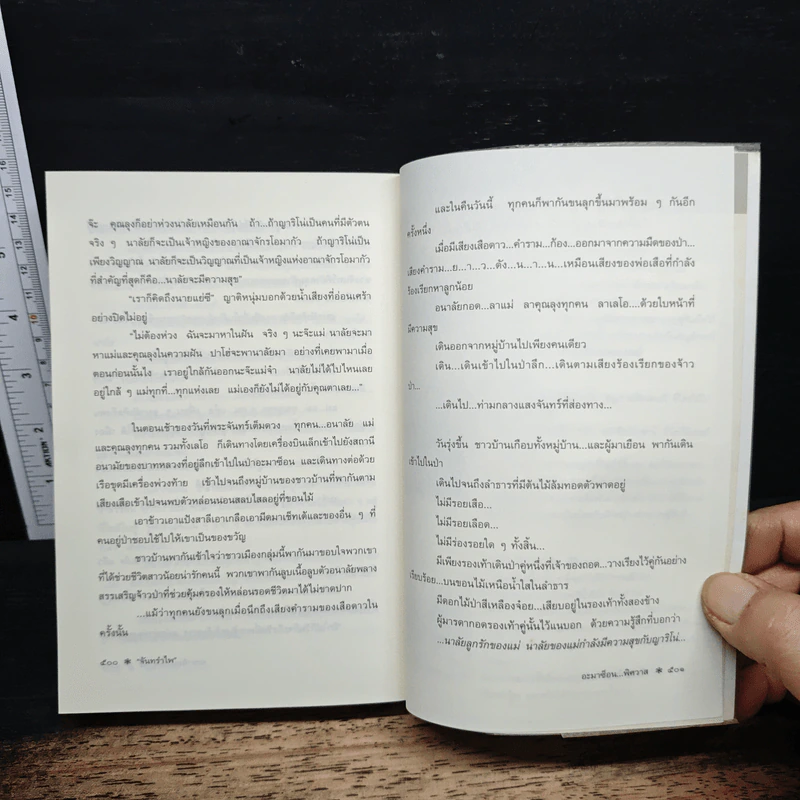 จ๊ะ คุณลุงก็อย่าห่วงนาลัยเหมือนกัน ถ้า...ถ้าญาริโน่เป็นคนที่มีตัวตน
จริง ๆ นาลัยก็จะเป็นเจ้าหญิงของอาณาจักรโอมากัว ถ้าญาริโน่เป็น
เพียงวิญญาณ นาลัยก็จะเป็นวิญญาณที่เป็นเจ้าหญิงแห่งอาณาจักรโอมากัว
ที่สำคัญที่สุดก็คือ...นาลัยจะมีความสุข”
“เราก็คิดถึงนายแย่ซี” ญาติหนุ่มบอกด้วยน้ำเสียงที่อ่อนเศร้า
อย่างปิดไม่อยู่
“ไม่ต้องห่วง ฉันจะมาหาในฝัน จริง ๆ นะจ๊ะแม่ นาลัยจะมา
หาแม่และคุณลุงในความฝัน ปาโฮ่จะพานาลัยมา อย่างที่เคยพามาเมื่อ
ตอนก่อนนั้นไง เราอยู่ใกล้กันออกนะจ๊ะแม่จ๋า นาลัยไม่ได้ไปไหนเลย
อยู่ใกล้ ๆ แม่ทุกที่...ทุกแห่งเลย แม่เองก็ยังไม่ได้อยู่กับคุณตาเลย...”
ในตอนเช้าของวันที่พระจันทร์เต็มดวง ทุกคน...อนาลัย แม่
และคุณลุงทุกคน รวมทั้งเลโอ ก็เดินทางโดยเครื่องบินเล็กเข้าไปยังสถานี
อนามัยของบาทหลวงที่อยู่ลึกเข้าไปในป่าอะมาซ็อน และเดินทางต่อด้วย
เรือขุดมีเครื่องพ่วงท้าย เข้าไปจนถึงหมู่บ้านของชาวบ้านที่พากันตาม
เสียงเสือเข้าไปจนพบตัวหล่อนนอนสลบไสลอยู่ที่ขอนไม้
เอาข้าวเอาแป้งสาลีเอาเกลือเอามีดมาเช็ทเต้และของอื่น ๆ ที่
คนอยู่ป่าชอบใช้ไปให้เขาเป็นของขวัญ
ชาวบ้านพากันเข้าใจว่าชาวเมืองกลุ่มนี้พากันมาขอบใจพวกเขา
ที่ได้ช่วยชีวิตสาวน้อยน่ารักคนนี้ พวกเขาพากันลูบเนื้อลูบตัวอนาลัยพลาง
สรรเสริญเจ้าวป่าที่ช่วยคุ้มครองให้หล่อนรอดชีวิตมาได้ไม่ขาดปาก
...แม้ว่าทุกคนยังขนลุกเมื่อนึกถึงเสียงคำรามของเสือดาวใน
ครั้งนั้น
๕๐๐ ❋ “จันทรำไพ”
และในคืนวันนี้ ทุกคนก็พากันขนลุกขึ้นมาพร้อม ๆ กันอีก
ครั้งหนึ่ง
เมื่อมีเสียงเสือดาว...คำราม...ก้อง...ออกมาจากความมืดของป่า...
เสียงคำราม...ย...า...ว...ดัง...น...า...น...เหมือนเสียงของพ่อเสือที่กำลัง
ร้องเรียกหาลูกน้อย
อนาลัยกอด...ลาแม่ ลาคุณลุงทุกคน ลาเลโอ....ด้วยใบหน้าที่
มีความสุข
เดินออกจากหมู่บ้านไปเพียงคนเดียว
เดิน...เดินเข้าไปในป่าลึก...เดินตามเสียงร้องเรียกของจ้าว
ป่า...
...เดินไป...ท่ามกลางแสงจันทร์ที่ส่องทาง...
วันรุ่งขึ้น ชาวบ้านเกือบทั้งหมู่บ้าน...และผู้มาเยือน พากันเดิน
เข้าไปในป่า
เดินไปจนถึงลำธารที่มีต้นไม้ล้มทอดตัวพาดอยู่
ไม่มีรอยเสือ...
ไม่มีรอยเลือด...
ไม่มีร่องรอยใด ๆ ทั้งสิ้น...
มีเพียงรองเท้าเดินป่าคู่หนึ่งที่เจ้าของถอด...วางเรียงไว้คู่กันอย่าง
เรียบร้อย...บนขอนไม้เหนือน้ำใสในลำธาร
มีดอกไม้ป่าสีเหลืองจ้อย...เสียบอยู่ในรองเท้าทั้งสองข้าง
ผู้มารดากอดรองเท้าคู่นั้นไว้แนบอก ด้วยความรู้สึกที่บอกว่า
...นาลัยลูกรักของแม่ นาลัยของแม่กำลังมีความสุขกับญาริโน่...
อะมาซ็อน...พิศวาส ❋ ๕๐๑